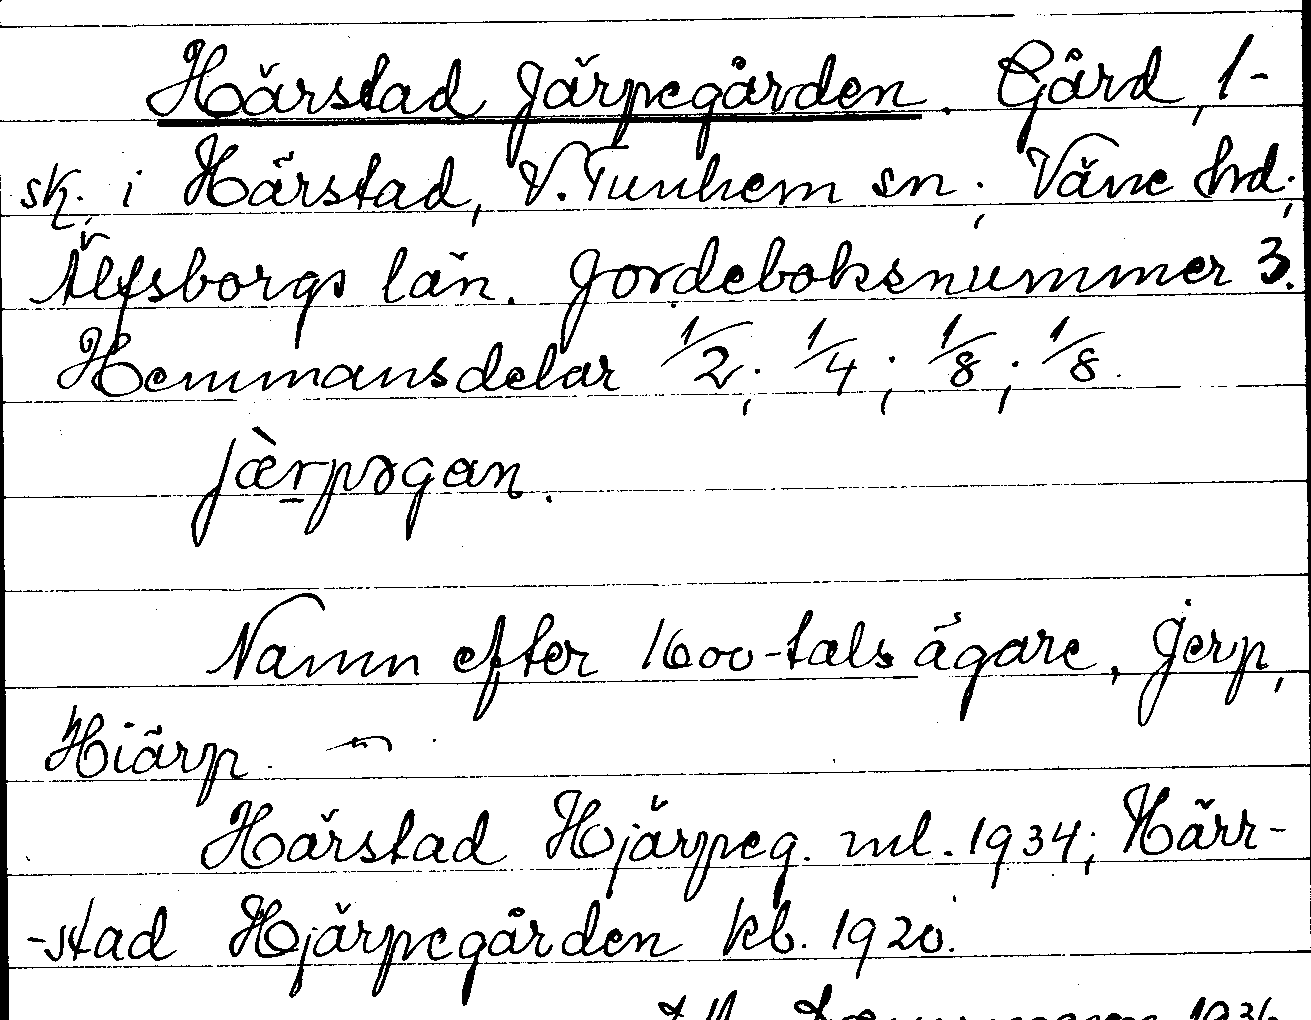 Härstad Järpegården. Gård, 1-
sk. i Härstad, V. Tunhem sn; Väne hd;
Älfsborgs län. Jordeboksnummer 3.
Hemmansdelar 1/2; 1/4; 1/8; 1/8.
jæ̀rpəgan.
Namn efter 1600-tals ägare, Jerp,
Hiärp.
Härstad Hjärpeg. ml. 1934; Härr-
-stad Hjärpegården kb. 1920.
1936